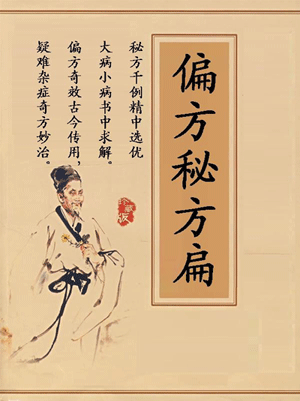 偏方秘方扁
秘方千例精中选优
大病小病书中求解。
偏方奇效古今传用，
疑难杂症奇方妙治。
珍藏版